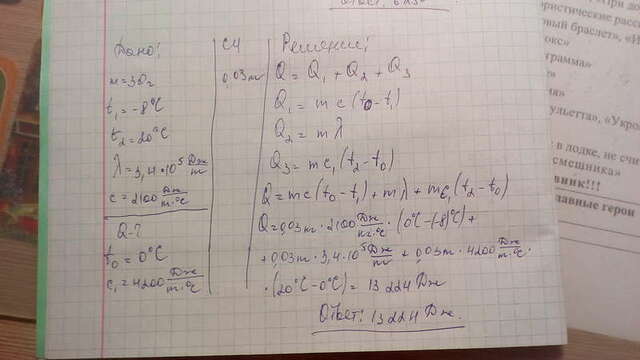 Ответ:
Дано:
m=30г
t₁=-8°C
t₂=20°C
λ=3,4·10⁵ Дж/кг
c=2100 Дж/кг·°C
Q-?
t₀=0°C
c₁=4200 Дж/кг·°C
СИ
0,03кг
Решение:
Q=Q₁+Q₂+Q₃
Q₁=mc(t₀-t₁)
Q₂=mλ
Q₃=mc₁(t₂-t₀)
Q=mc(t₀-t₁)+mλ+mc₁(t₂-t₀)
Q=0,03кг·2100 Дж/кг·°C·(0°C-(-8)°C)+
+0,03кг·3,4·10⁵ Дж/кг+0,03кг·4200 Дж/кг·°C·
·(20°C-0°C)=13224 Дж
Ответ: 13224 Дж.
«При до
ористические расс
овый браслет», «И
окс»
грамма»
ия»
ульетта», «Укро
в лодке, не счи
смешника»
вник!!!
лавные герои